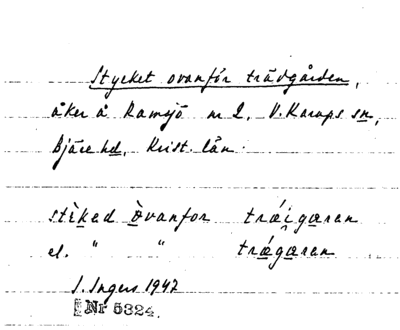 Stycket ovanför trädgården,
åker å Ramsjö nr 2, V. Karups sn,
Bjäre hd, Krist. län.
stìked òvanfor trǽigæran
el. " " trǽgæran
I. Ingers 1947
Nr 5324.